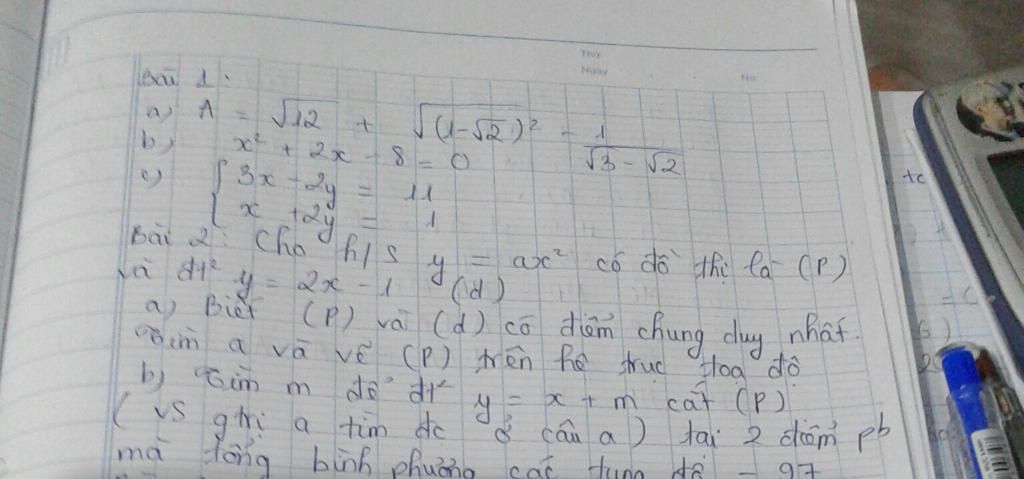 Thứ
Ngày No
Bài 1:
a) A = √12 + √(1-√2)² - 1/(√3 - √2)
b) x² + 2x - 8 = 0
c) { 3x - 2y = 11
x + 2y = 1
Bài 2: Cho h/s y = ax² có đồ thị là (P)
và đt² y = 2x - 1 (d)
a) Biết (P) và (d) có điểm chung duy nhất.
Tìm a và vẽ (P) trên hệ trục toạ độ
b) Tìm m để đt² y = x + m cắt (P)
( vs gtrị a tìm đc ở câu a) tại 2 điểm pb
mà tổng bình phương các tung độ = 97